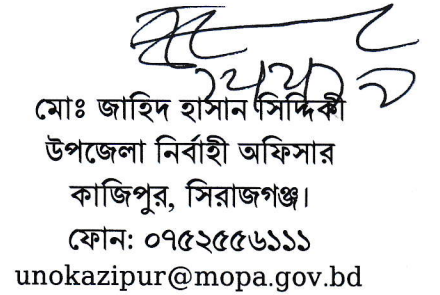 মোঃ জাহিদ হাসান সিদ্দিকী
উপজেলা নির্বাহী অফিসার
কাজিপুর, সিরাজগঞ্জ।
ফোন: ০৭৫২৫৫৬১১১
unokazipur@mopa.gov.bd